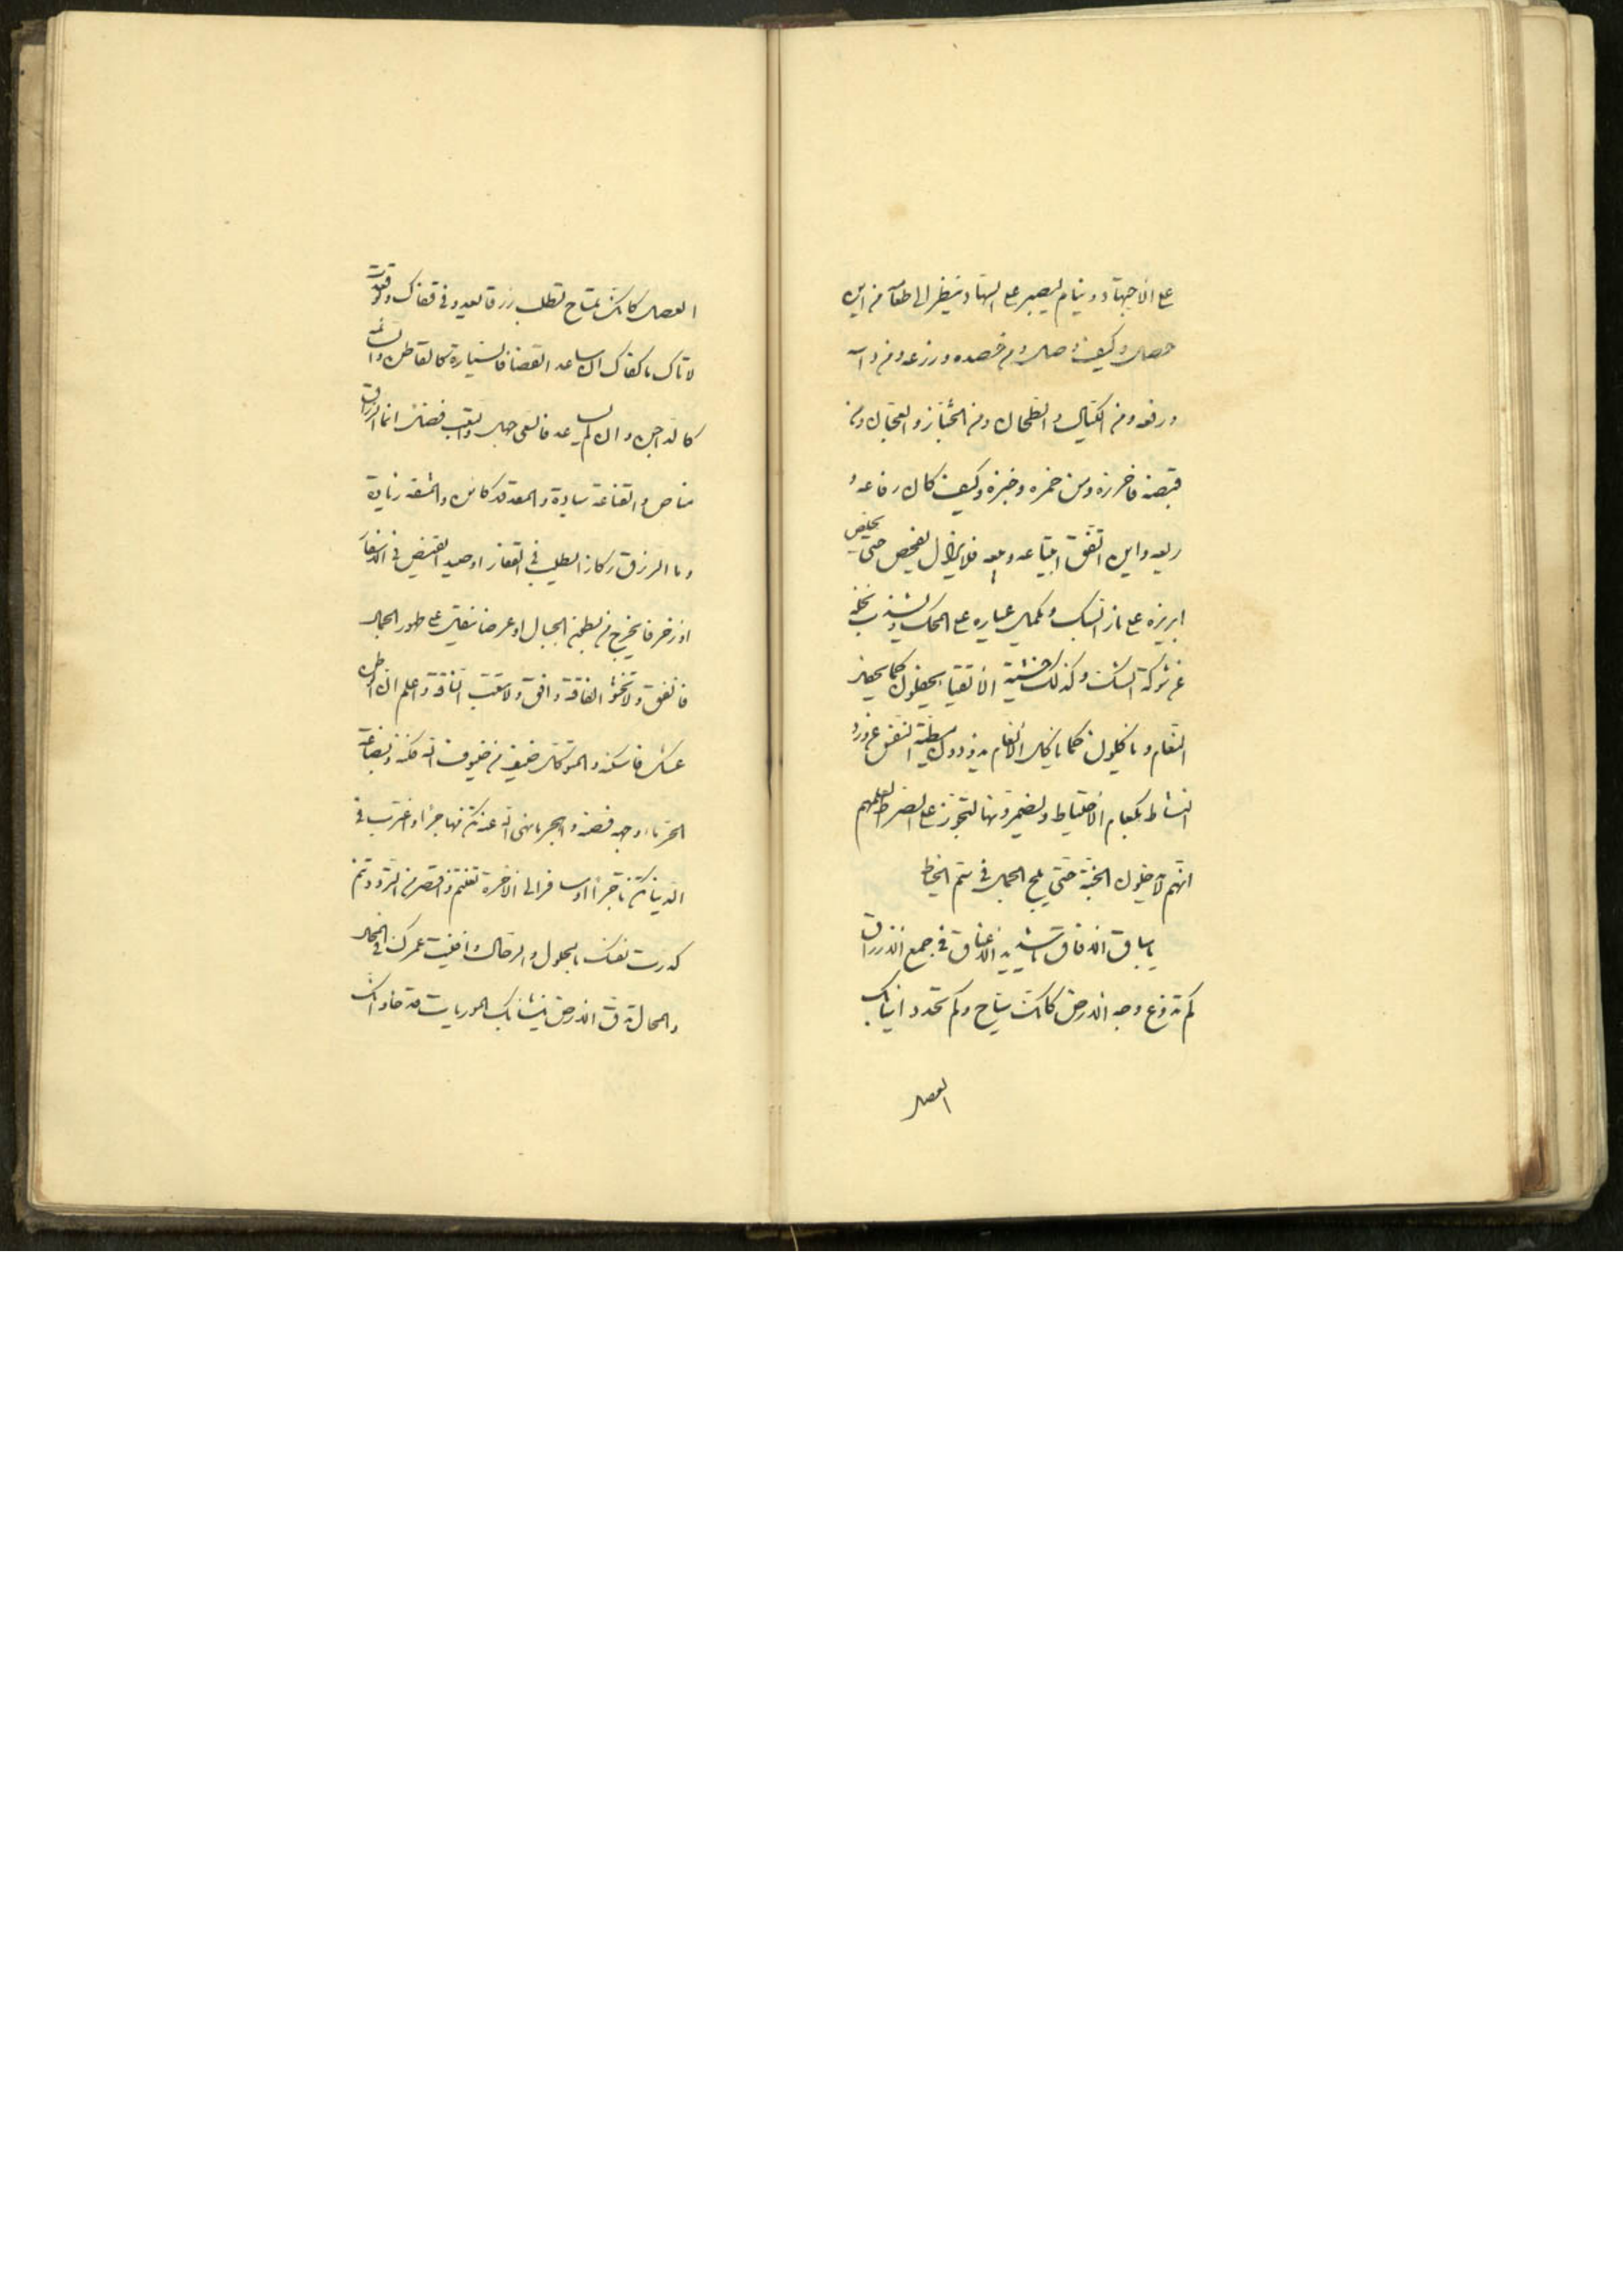 على الاجتهاد وينام ليصبر على السهاد وينظر الى طعامه من اين
حصل وكيف وصل ومن حصده وزرعه ومن داسه
ورفعه ومن الكيال والطحان ومن الخباز والعجان ومن
قبضه فاحرزه ومن خمره وخبزه وكيف كان رفاعه و
ريعه واين اتفق ابتياعه وبيعه فلا يزال يفحص حتى يخلص
ابريزه على نار السبك ويكمل عياره على المحك ويشذب نخله
عن شوكة الشك وكذلك خشية الاتقياء يجفلون كما يجفل
النعام وياكلون كما ياكل الانعام يذودون مطية النفس عن ورد
النشاط بكعام الاحتياط ولضمرونها لتجوز على الصراط لعلمهم
انهم لا يدخلون الجنة حتى يلج الجمل في سم الخياط
يا سباق الافاق يا شديد الاعناق في جمع الارزاق
كم تذرع وجه الارض كانك سياح وكم تحدد انيابك
العصل
العصل كانك تمساح تطلب رزقا يعدو في قفاك ولو قعدت
لاتاك ما كفاك ان ساعد القضاء فالسيارة كالقاطن والسائمة
كالداجن وان لم يساعد فالسعى جهل والتعب فضل انما الرزاق
ضامن والقناعة سيادة والمعدة كامن والمشقة زيادة
وما الرزق ركاز ايطلب في القفار او صيدا يقتنص في الاسفار
او زخرفا يخرج من بطون الجبال او عرضا ينقل على ظهور الجمال
فانفق ولا تخش الفاقة وافق ولا تتعب الناقة واعلم ان الوطن
عشك فاسكنه والمتوكل ضيف من ضيوف الله فكنه وبضاعة
الحر ماء وجهه فصنه والهجر ما نهى الله عنه تكن مهاجرا واغترب في
الدنيا تكن تاجرا او سافر الى الاخرة تغنم واقصر من التردد
كدرت نفسك بالحلول والارتحال وافنيت عمرك في المحال
والمحال تدق الارض